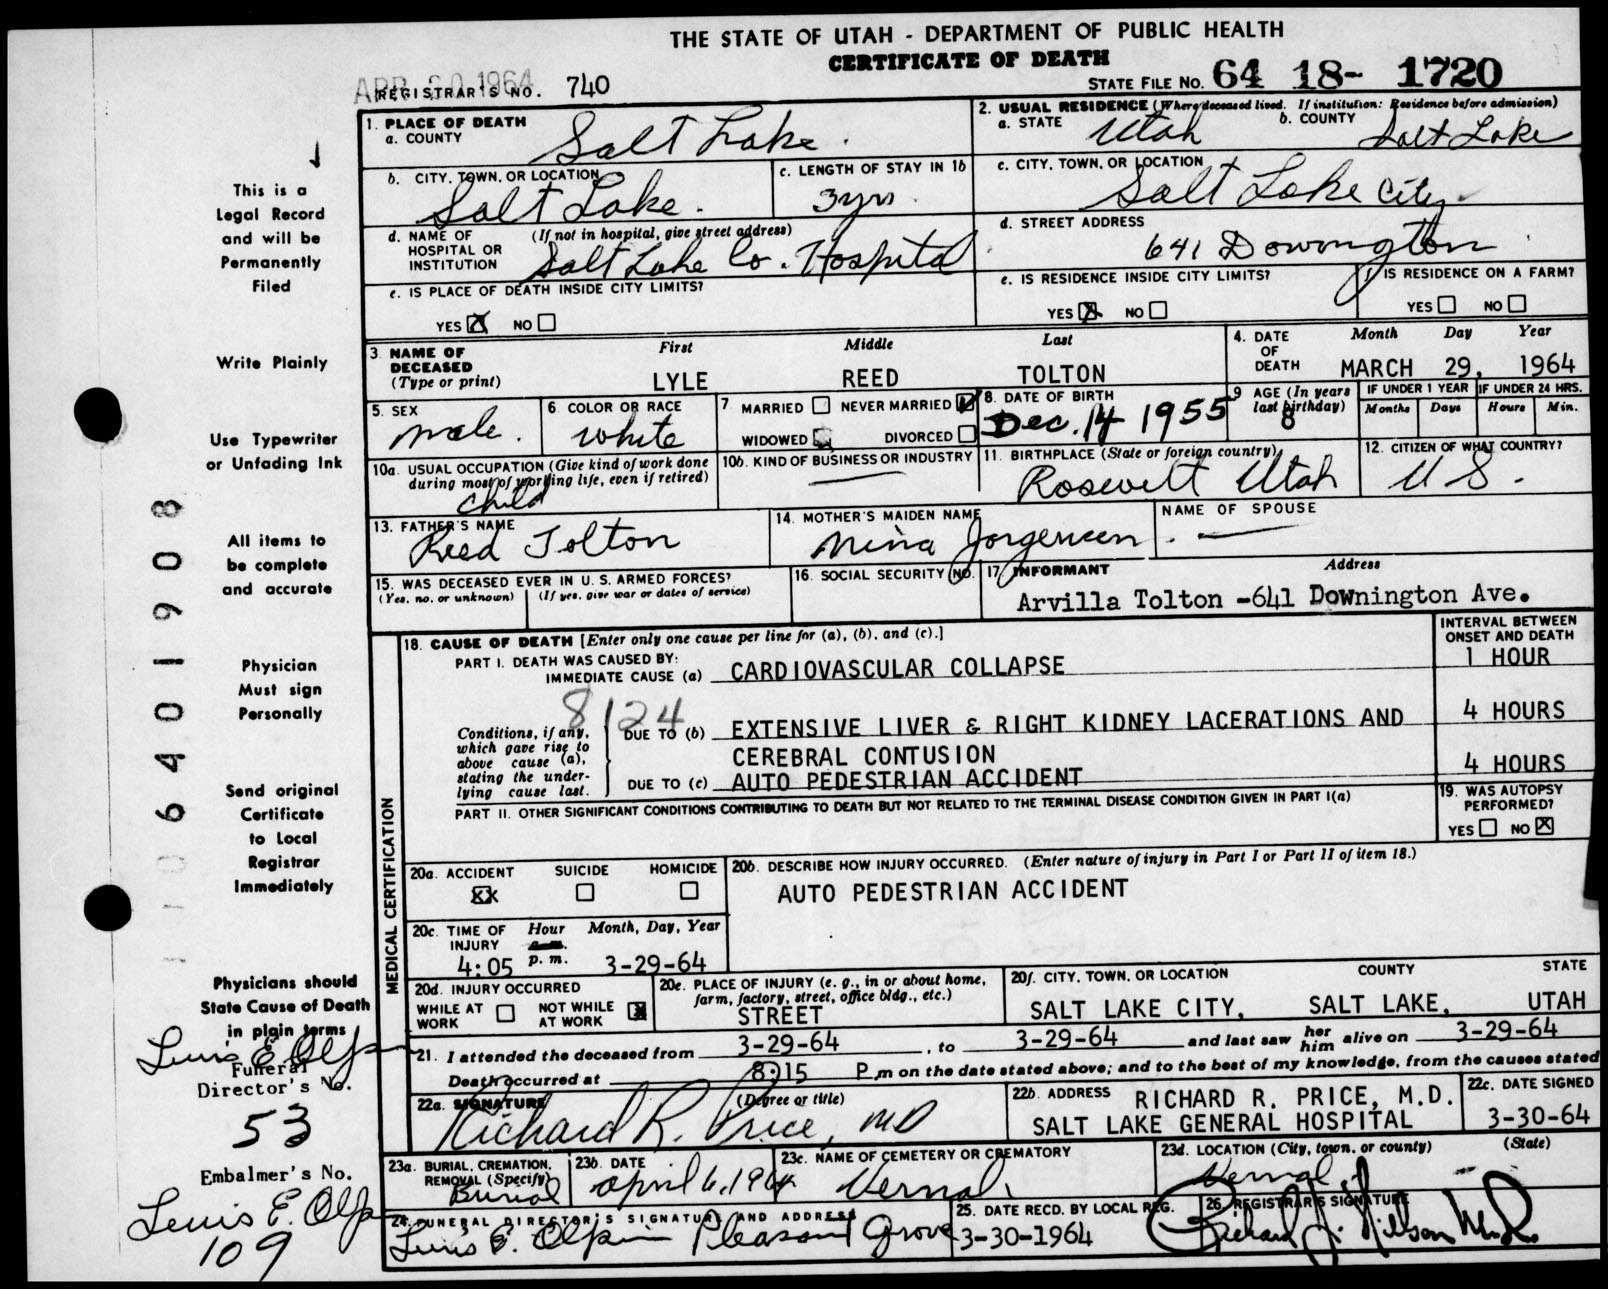 THE STATE OF UTAH - DEPARTMENT OF PUBLIC HEALTH
CERTIFICATE OF DEATH
REGISTRAR'S NO. 740
STATE FILE NO. 64 18- 1720
This is a
Legal Record
and will be
Permanently
Filed
Write Plainly
Use Typewriter
or Unfading Ink
All items to
be complete
and accurate
Physician
Must sign
Personally
Send original
Certificate
to Local
Registrar
Immediately
Physicians should
State Cause of Death
in plain terms
Funeral
Director's No.
53
Embalmer's No.
Lewis E. Olpin
109
1. PLACE OF DEATH
a. COUNTY Salt Lake.
2. USUAL RESIDENCE (Where deceased lived. If institution: Residence before admission)
a. STATE Utah b. COUNTY Salt Lake
b. CITY, TOWN, OR LOCATION Salt Lake.
c. LENGTH OF STAY IN 1b 3yrs.
c. CITY, TOWN, OR LOCATION Salt Lake City.
d. NAME OF HOSPITAL OR INSTITUTION (If not in hospital, give street address) Salt Lake Co. Hospital
d. STREET ADDRESS 641 Downington
e. IS PLACE OF DEATH INSIDE CITY LIMITS?
YES X NO
e. IS RESIDENCE INSIDE CITY LIMITS?
YES X NO
f. IS RESIDENCE ON A FARM?
YES NO
3. NAME OF DECEASED (Type or print)
First Middle Last
LYLE REED TOLTON
4. DATE OF DEATH Month Day Year
MARCH 29, 1964
5. SEX male.
6. COLOR OR RACE white
7. MARRIED NEVER MARRIED
WIDOWED DIVORCED
8. DATE OF BIRTH Dec. 14 1955
9. AGE (In years last birthday) 8
IF UNDER 1 YEAR IF UNDER 24 HRS.
Months Days Hours Min.
10a. USUAL OCCUPATION (Give kind of work done during most of working life, even if retired) child
10b. KIND OF BUSINESS OR INDUSTRY
11. BIRTHPLACE (State or foreign country) Rosevelt Utah
12. CITIZEN OF WHAT COUNTRY? U S.
13. FATHER'S NAME Reed Tolton
14. MOTHER'S MAIDEN NAME Nina Jorgensen.
NAME OF SPOUSE
15. WAS DECEASED EVER IN U.S. ARMED FORCES?
(Yes, no, or unknown) (If yes, give war or dates of service)
16. SOCIAL SECURITY NO.
17. INFORMANT Address
Arvilla Tolton -641 Downington Ave.
MEDICAL CERTIFICATION
18. CAUSE OF DEATH [Enter only one cause per line for (a), (b), and (c).]
INTERVAL BETWEEN ONSET AND DEATH
PART I. DEATH WAS CAUSED BY:
IMMEDIATE CAUSE (a) CARDIOVASCULAR COLLAPSE 1 HOUR
8124
Conditions, if any, which gave rise to above cause (a), stating the underlying cause last.
DUE TO (b) EXTENSIVE LIVER & RIGHT KIDNEY LACERATIONS AND 4 HOURS
CEREBRAL CONTUSION
DUE TO (c) AUTO PEDESTRIAN ACCIDENT 4 HOURS
PART II. OTHER SIGNIFICANT CONDITIONS CONTRIBUTING TO DEATH BUT NOT RELATED TO THE TERMINAL DISEASE CONDITION GIVEN IN PART I(a)
19. WAS AUTOPSY PERFORMED?
YES NO X
20a. ACCIDENT SUICIDE HOMICIDE
XX
20b. DESCRIBE HOW INJURY OCCURRED. (Enter nature of injury in Part I or Part II of item 18.)
AUTO PEDESTRIAN ACCIDENT
20c. TIME OF INJURY Hour Month, Day, Year
a.m.
4:05 p.m. 3-29-64
20d. INJURY OCCURRED
WHILE AT WORK NOT WHILE AT WORK X
20e. PLACE OF INJURY (e. g., in or about home, farm, factory, street, office bldg., etc.)
STREET
20f. CITY, TOWN, OR LOCATION COUNTY STATE
SALT LAKE CITY, SALT LAKE, UTAH
21. I attended the deceased from 3-29-64, to 3-29-64 and last saw her him alive on 3-29-64
Death occurred at 8:15 P.m on the date stated above; and to the best of my knowledge, from the causes stated
22a. SIGNATURE (Degree or title)
Richard R. Price, MD
22b. ADDRESS RICHARD R. PRICE, M.D.
SALT LAKE GENERAL HOSPITAL
22c. DATE SIGNED
3-30-64
23a. BURIAL, CREMATION, REMOVAL (Specify) Burial
23b. DATE April 6, 1964
23c. NAME OF CEMETERY OR CREMATORY Vernal.
23d. LOCATION (City, town, or county) (State)
Vernal
24. FUNERAL DIRECTOR'S SIGNATURE AND ADDRESS
Lewis E. Olpin Pleasant Grove
25. DATE RECD. BY LOCAL REG.
3-30-1964
26. REGISTRAR'S SIGNATURE